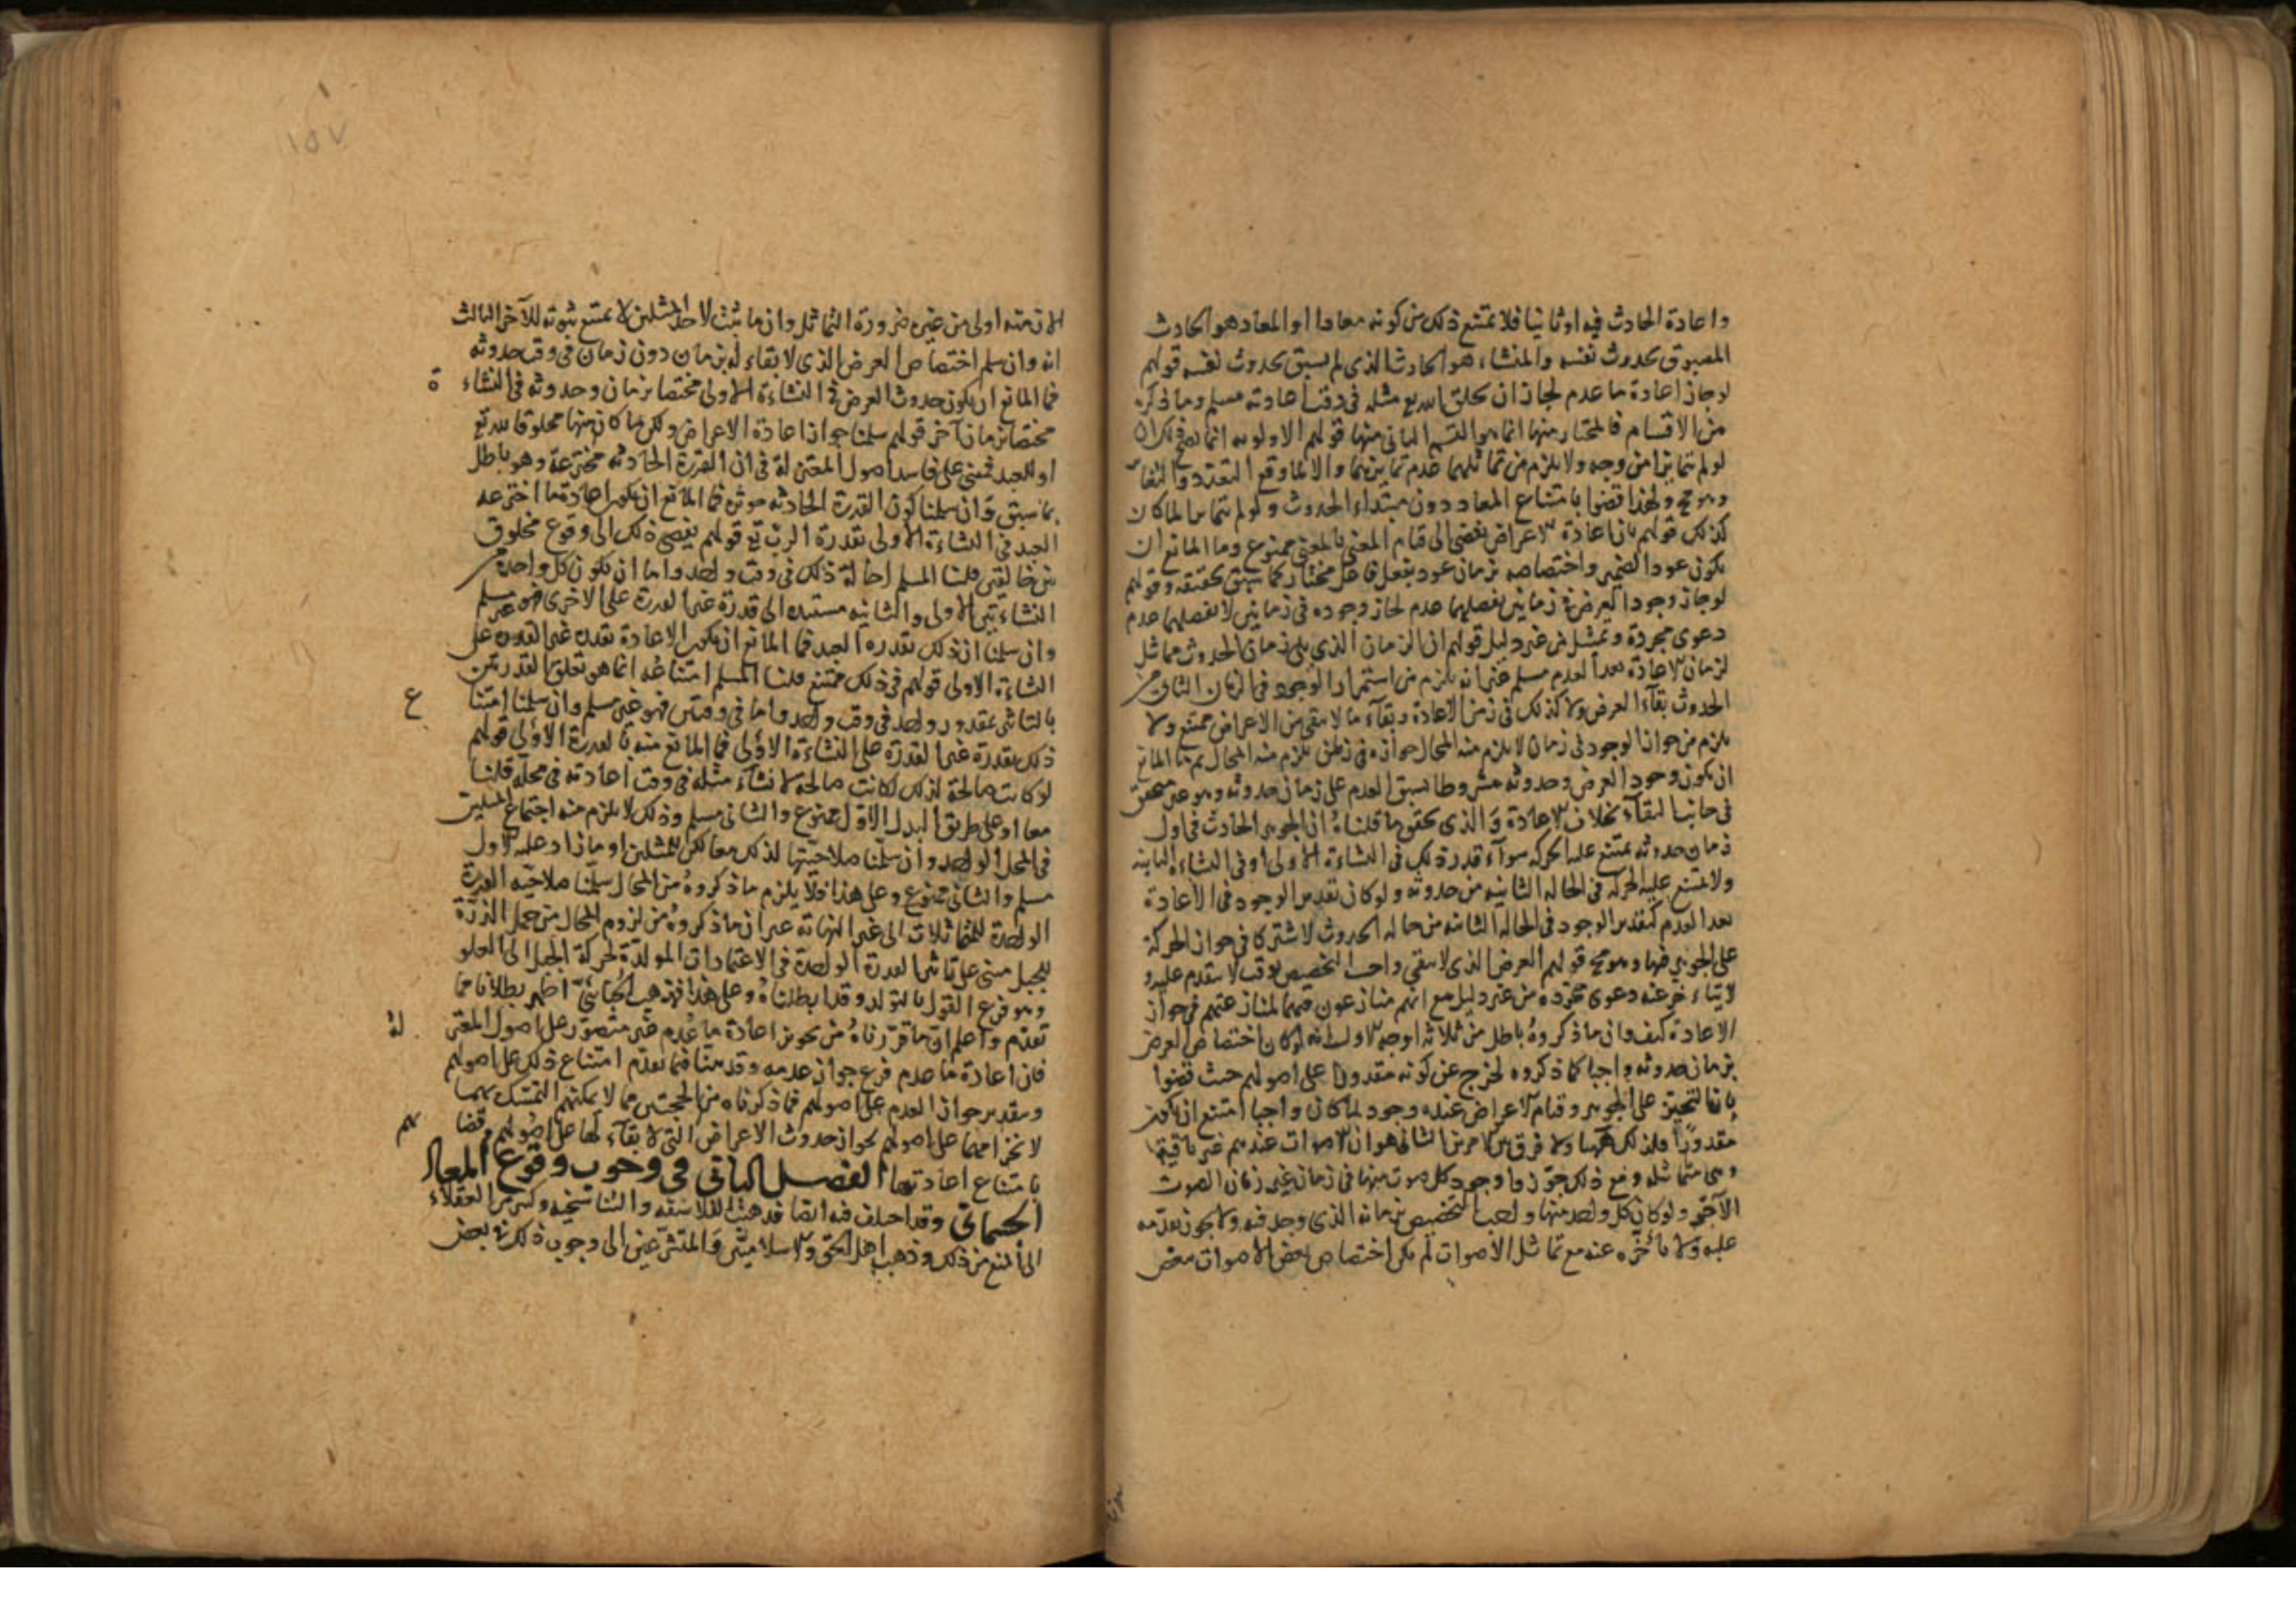 واعادة الحادث فيه او ثانيا فلا يمتنع ذلك من كونه معادا او المعاد هو الحادث
المسبوق بحدوث نفسه والمنشاء هو الحادث الذى لم يسبق بحدوث نفسه قولهم
لو جاز اعادة ما عدم لجاز ان يخلق الله تع مثله فى وقت اعادته مسلم وما ذكره
من الاقسام فالمختار منها انما هو القسم الثانى منها قولهم الاولويه انما يصح ذلك ان
لو لم يتمايزا من وجه ولا يلزم من تماثلهما عدم تمايزهما والا لما وقع التعدد
ولهذا قضوا بامتناع المعاد دون مبتداء الحدوث ولو لم يتمايزا لما كان
كذلك قولهم بان اعادة الاعراض يفضى الى قيام المعنى بالمعنى ممنوع وما المانع ان
يكون عود واختصاصه بزمان عوده بفعل فاعل مختار كما سبق تحقيقه وقولهم
لو جاز وجود العرض فى زمانين يفصلهما عدم لجاز وجوده فى زمانين لا يفصلهما عدم
دعوى مجردة وتمثيل من غير دليل قولهم ان الزمان الذى يلى زمان الحدوث مماثل
لزمان الاعادة بعد العدم مسلم غير انه يلزم من استمرار الوجود فى الزمان الثانى من
الحدوث بقآء العرض ولا كذلك فى زمن الاعادة وبقآء ما لا يبقى من الاعراض ممتنع ولا
يلزم من جواز الوجود فى زمان لا يلزم منه المحال جوازه فى زمن يلزم منه المحال ثم ما المانع
ان يكون وجود العرض وحدوثه مشروطا بسبق العدم على زمان حدوثه وهو غير متحقق
فى حالة البقآء بخلاف الاعادة والذى يحقق ما قلناه ان الجوهر الحادث فى اول
زمان حدوثه يمتنع عليه الحركه سوآء قدر ذلك فى النشاءة الاولى او فى النشاءة الثانيه
ولا يمتنع عليه الحركه فى الحاله الثانيه من حدوثه ولو كان تقدير الوجود فى الاعادة
بعد العدم كتقدير الوجود فى الحاله الثانيه من حاله الحدوث لاشتركا فى جواز الحركة
على الجوهر فيها وهو مح قولهم العرض الذى لا يبقى واجب التخصيص بوقت لا يتقدم عليه ولا
يتاءخر عنه دعوى مجرده من غير دليل مع انهم منازعون فيها لمنازعتهم فى جواز
الاعادة كيف وان ما ذكروه باطل من ثلاثه اوجه الاول انه لو كان اختصاص العرض
بزمان حدوثه واجبا كما ذكروه لخرج عن كونه مقدورا على اصولهم حيث قضوا
بان التحيز على الجوهر وقيام الاعراض عنده وجود لما كان واجبا امتنع ان يكون
مقدورًا فلذلك هاهنا ولا فرق بين الامرين الثانى هو ان الاصوات عندهم غير باقية
وهى متماثله ومع ذلك جوّزوا وجود كل صوت منها فى زمان غير زمان الصوت
الآخر ولو كان كل واحد منها واجب التخصيص بزمانه الذى وجد فيه ولا يجوز تقدّمه
عليه ولا تأخّره عنه مع تماثل الاصوات لم يكن اختصاص بعض الاصوات ببعض
١٥٧
الازمنه اولى من غير ضرورة التماثل وان ما ثبت لاحد المثلين لا يمتنع ثبوته للآخر الثالث
انه وان سلم اختصاص العرض الذى لا بقاء له بزمان دون زمان فى وقت حدوثه
فما المانع ان يكون حدوث العرض فى النشاءة الاولى مختصا بزمان وحدوثه فى النشاءة
مختصا بزمان آخر قولهم سلمنا جواز اعادة الاعراض ولكن ما كان منها مخلوقا لله تع
او للعبد فمبنى على فاسد اصول المعتزلة فى ان القدرة الحادثه مخترعة وهو باطل
بما سبق وان سلمنا كون القدرة الحادثه موثره فما المانع ان يكون اعادة ما اخترعه
العبد فى النشاءة الاولى بقدرة الرب تع قولهم يفضى ذلك الى وقوع مخلوق
بين خالقين قلنا المسلم احالة ذلك فى وقت واحد واما ان يكون كل واحدة من
النشاءتين الاولى والثانيه مستنده الى قدرة غير القدرة على الاخرى فهو غير مسلم
وان سلمنا ان ذلك بقدره العبد فما المانع ان يكون الاعادة بقدره غير القدره على
النشاءة الاولى قولهم فى ذلك ممتنع قلنا المسلم امتناعه انما هو تعلق القدرتين
بالتاثير بمقدور واحد فى وقت واحد واما فى وقتين فهو غير مسلم وان سلمنا امتناع
ذلك بقدرة غير القدرة على النشاءة الاولى فما المانع منه بالقدرة الاولى قولهم
لو كانت صالحة لذلك لكانت صالحه لانشآء مثله فى وقت اعادته فى محله قلنا
معا او على طريق البدل الاول ممنوع والثانى مسلم وذلك لا يلزم منه اجتماع المثلين
فى المحل الواحد وان سلّمنا صلاحيتها لذلك معا لكن للمثلين او ما زاد عليه الاول
مسلم والثانى ممنوع وعلى هذا فلا يلزم ما ذكروه من المحال سلّمنا صلاحيّه القدرة
الواحدة للمتماثلات الى غير النهاية غير ان ما ذكروه من لزوم المحال من حمل الذرّة
للجبل مبنى على تاثير القدرة الواحدة فى الاعتمادات المولدّة لحركة الجبل الى العلو
وهو فرع القول بالتولد وقد ابطلناه وعلى هذا فمذهب الجبّائىّ اظهر بطلانا مما
تقدّم واعلم ان ما قرّرناه من تجويز اعادة ما عُدم غير متصوّر على اصول المعتزلة
فان اعادة ما عدم فرع جواز عدمه وقد بينّا فيما تقدّم امتناع ذلك على اصولهم
وبتقدير جواز العدم على اصولهم فما ذكرناه من الحجتين مما لا يمكنهم التمسّك بهما
لانخرامهما على اصولهم بجواز حدوث الاعراض التى لا بقآء لها على اصولهم وقضاءهم
بامتناع اعادتها الفصل الثانى فى وجوب وقوع المعاد
الجسمانى وقد اختلف فيه ايضا فذهب الفلاسفه والتناسخيه وكثير من العقلاء
الى المنع من ذلك وذهب اهل الحق والاسلاميين والمتشرّعين الى وجوب ذلك فى بعض